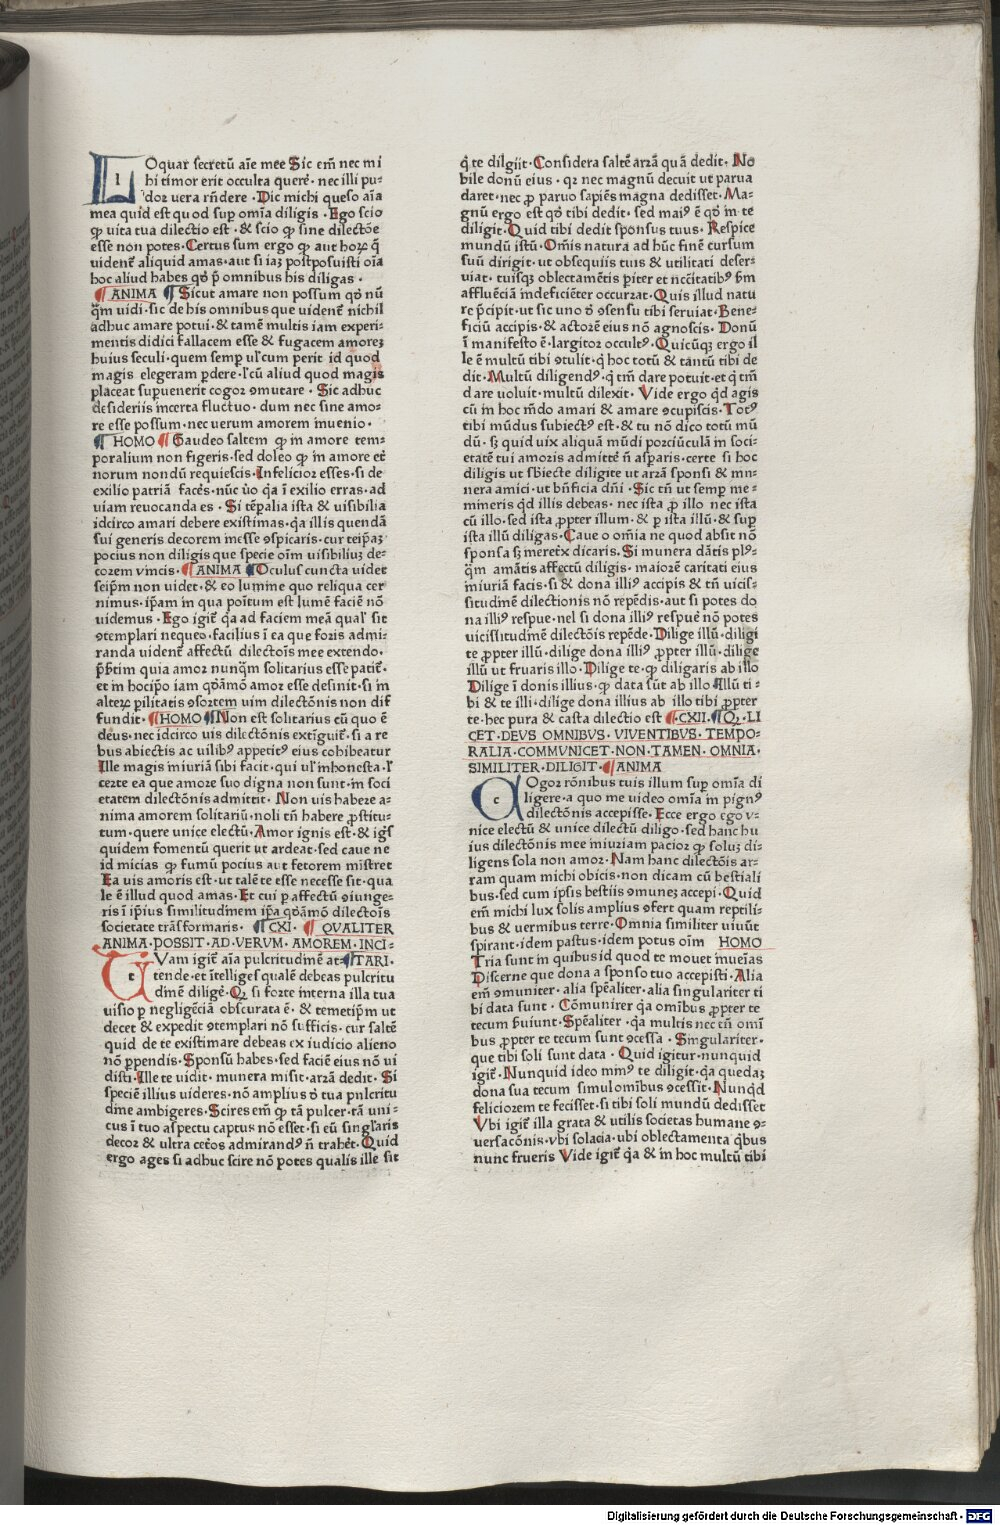 LOquar secretū aīe mee Sic em̄ nec mi
hi timor erit occulta querē· nec illi pu-
dor uera rn̄dere · Dic michi queso aīa
mea quid est quod sup omīa diligis · Ego scio
ꝙ uita tua dilectio est · & scio ꝙ sine dilectōe
esse non potes· Certus sum ergo ꝙ aut hoꝝ q̄
uident̄ aliquid amas· aut si iaꝫ postposuisti oīa
hoc aliud habes qđ p̄ omnibus his diligas ·
¶ ANIMA ¶ Sicut amare non possum qđ nū
q̄m uidi· sic de his omnibus que uident̄ nichil
adhuc amare potui· & tamē multis iam experi-
mentis didici fallacem esse & fugacem amoreꝫ
huius seculi· quem semp ul̓ cum perit id quod
magis elegeram ꝑdere· l̓ cū aliud quod magis
placeat supuenerit cogor ꝯmutare · Sic adhuc
desideriis incerta fluctuo· dum nec sine amo-
re esse possum· nec uerum amorem inuenio ·
¶ HOMO ¶ Gaudeo saltem ꝙ in amore tem-
poralium non figeris· sed doleo ꝙ in amore et̄
norum nondū requiescis· Infelicior esses· si de
exilio patriā facēs· nūc ūo q̄a ī exilio erras· ad
uiam reuocanda es · Si tēpalia ista & uisibilia
idcirco amari debere existimas· q̄a illis quendā
sui generis decorem inesse ꝯspicaris· cur teip̄aꝫ
pocius non diligis que specie oīm uisibiliuꝫ de-
corem vincis· ¶ ANIMA ¶ Oculus cuncta videt
seip̄m non uidet· & eo lumine quo reliqua cer
nimus· ip̄am in qua poītum est lumē faciē nō
uidemus · Ego igit̄ q̄a ad faciem meā qual̓ sit
ꝯtemplari nequeo· facilius ī ea que foris admi-
randa uident̄ affectū dilectoīs mee extendo·
p̄btim quia amor nunq̄m solitarius esse patit̄·
et in hocip̄o iam qđāmō amor esse desinit· si in
alterꝫ ꝑilitatis ꝯsortem uim dilectōnis non dif
fundit· ¶HOMO ¶Non est solitarius cū quo ē
deus· nec idcirco uis dilectōnis extīguit̄· si a re
bus abiectis ac uilibꝰ appetitꝰ eius cohibeatur
Ille magis iniuriā sibi facit· qui ul̓ inhonesta· l̓
certe ea que amore suo digna non sunt· in soci
etatem dilectōnis admittit · Non uis habere a-
nima amorem solitariū· noli tn̄ habere ꝓstitu-
tum· quere unice electū· Amor ignis est· & igs̄
quidem fomentū querit ut ardeat· sed caue ne
id micias ꝙ fumū pocius aut fetorem mīstret
Ea uis amoris est· ut talē te esse necesse sit· qua
le ē illud quod amas· Et cui ꝑ affectū ꝯiunge-
ris ī ip̄ius similitudīnem ip̄a qđāmō dilectoīs
societate trāsformaris· ¶CXI· ¶ QVALITER
ANIMA·POSSIT·AD·VERVM·AMOREM·INCI-
TVam igit̄ aīa pulcritudīnē at- ¶TARI·
tende· et ītelliges qualē debeas pulcritu
dīnē diligē· Qꝫ si forte interna illa tua
uisio ꝑ negligēciā obscurata ē· & temetip̄m ut
decet & expedit ꝯtemplari nō sufficis· cur saltē
quid de te existimare debeas ex iudicio alieno
nō ꝑpendis· Sponsū habes· sed faciē eius nō ui
disti· Ille te uidit· munera misit· arrā dedit· Si
speciē illius uideres· nō amplius đ tua pulcritu
dīne ambigeres· Scires em̄ ꝙ tā pulcer· tā uni-
cus ī tuo aspectu captus nō esset· si eū singl̓aris
decor & ultra cet̄os admirandꝰ n̄ trahet̄· Quid
ergo ages si adhuc scire nō potes qualis ille sit
q̄ te diligit· Considera saltē arrā quā dedit· No
bile donū eius · qꝫ nec magnū decuit ut parua
daret· nec ꝓ paruo sapiēs magna dedisset· Ma-
gnū ergo est qđ tibi dedit· sed maiꝰ ē qđ in te
diligit· Quid tibi dedit sponsus tuus· Respice
mundū istū· Om̄is natura ad hūc finē cursum
suū dirigit· ut obsequiis tuis & utilitati deser-
uiat· tuisqꝫ oblectamētis ꝑiter et nc̄citatibꝰ ẜm
affluēciā indeficiēter occurrat· Quis illud natu
re p̄cipit· ut sic uno đ ꝯsensu tibi seruiat· Bene-
ficiū accipis· & actorē eius nō agnoscis· Donū
ī manifesto ē· largitor occultꝰ· Quicūqꝫ ergo il
le ē multū tibi ꝯtulit· q̓ hoc totū & tantū tibi de
dit· Multū diligendꝰ· q̓ tm̄ dare potuit· et q̓ tm̄
dare uoluit· multū dilexit· Vide ergo qd̓ agis
cū in hoc mđo amari & amare ꝯcupiscis· Totꝰ
tibi mūdus subiectꝰ est· & tu nō dico totū mū
dū· sꝫ quid uix aliquā mūdi porciūculā in soci-
etatē tui amoris admittē n̄ asꝑaris· certe si hoc
diligis ut sb̓iecte diligite ut arrā sponsi & mu-
nera amici· ut bn̓ficia dn̄i · Sic tn̄ ut semꝑ me-
mineris qđ illis debeas· nec ista ꝓ illo nec ista
cū illo· sed ista ꝓpter illum· & ꝑ ista illū· & sup
ista illū diligas· Caue o omīa ne quod absit nō
sponsa sꝫ meret̓x dicaris· Si munera dātis plꝰ-
q̄m amātis affectū diligis· maiorē caritati eius
iniuriā facis· si & dona illiꝰ accipis & tn̄ uicis-
situdīnē dilectionis nō repēdis· aut si potes do
na illiꝰ respue· nel si dona illiꝰ respuē nō potes
vicissitudīnē dilectōis repēde· Dilige illū· diligi
te ꝓpter illū· dilige dona illiꝰ ꝓpter illū· dilige
illū ut fruaris illo· Dilige te· ꝙ diligaris ab illo
Dilige ī donis illius· ꝙ data sūt ab illo Illū ti-
bi & te illi· dilige dona illius ab illo tibi ꝓpter
te· hec pura & casta dilectio est ¶·CXII· ¶Qꝫ·LI
CET·DEVS OMNIBVS·VIVENTIBVS·TEMPO-
RALIA·COMMVNICET·NON·TAMEN·OMNIA·
SIMILITER·DILIGIT· ¶ANIMA
COgor rōnibus tuis illum sup omīa di
ligere· a quo me uideo omīa in pignꝰ
dilectōnis accepisse· Ecce ergo ego v-
nice electū & unice dilectū diligo· sed hanc hu
ius dilectōnis mee iniuriam pacior ꝙ soluꝫ di-
ligens sola non amor· Nam hanc dilectōis ar-
ram quam michi obicis· non dicam cū bestiali
bus· sed cum ipsis bestiis ꝯmuneꝫ accepi· Quid
em̄ michi lux solis amplius ꝯfert quam reptili-
bus & uermibus terre· Omnia similiter uiuūt
spirant· idem pastus· idem potus oīm HOMO
Tria sunt in quibus id quod te mouet inueīas
Discerne que dona a sponso tuo accepisti· Alia
em̄ ꝯmuniter· alia spēaliter· alia singulariter ti
bi data sunt · Cōmunirer q̄a omībus ꝓpter te
tecum ẜuiunt· Spēaliter · q̄a multis nec tn̄ omī
bus ꝓpter te tecum sunt ꝯcessa · Singulariter·
que tibi soli sunt data · Quid igitur· nunquid
igit̄· Nunquid ideo minꝰ te diligit· q̄a quedaꝫ
dona sua tecum simul omībus ꝯcessit· Nunqd̓
feliciorem te fecisset· si tibi soli mundū dedisset
Vbi igit̄ illa grata & utilis societas humane ꝯ-
uersacōnis· vbi solacia· ubi oblectamenta q̓bus
nunc frueris Vide igit̄ q̄a & in hoc multū tibi
Digitalisierung gefördert durch die Deutsche Forschungsgemeinschaft - DFG